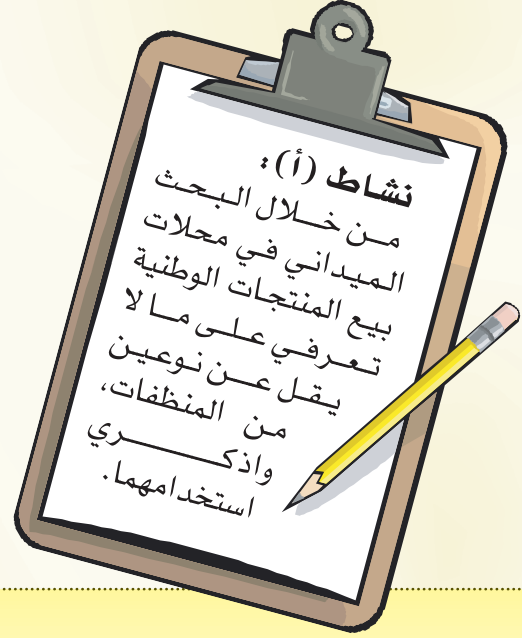 نشاط (أ) :
من خلال البحث
الميداني في محلات
بيع المنتجات الوطنية
تعرفي على ما لا
يقل عن نوعين
من المنظفات،
واذكري
استخدامهما.